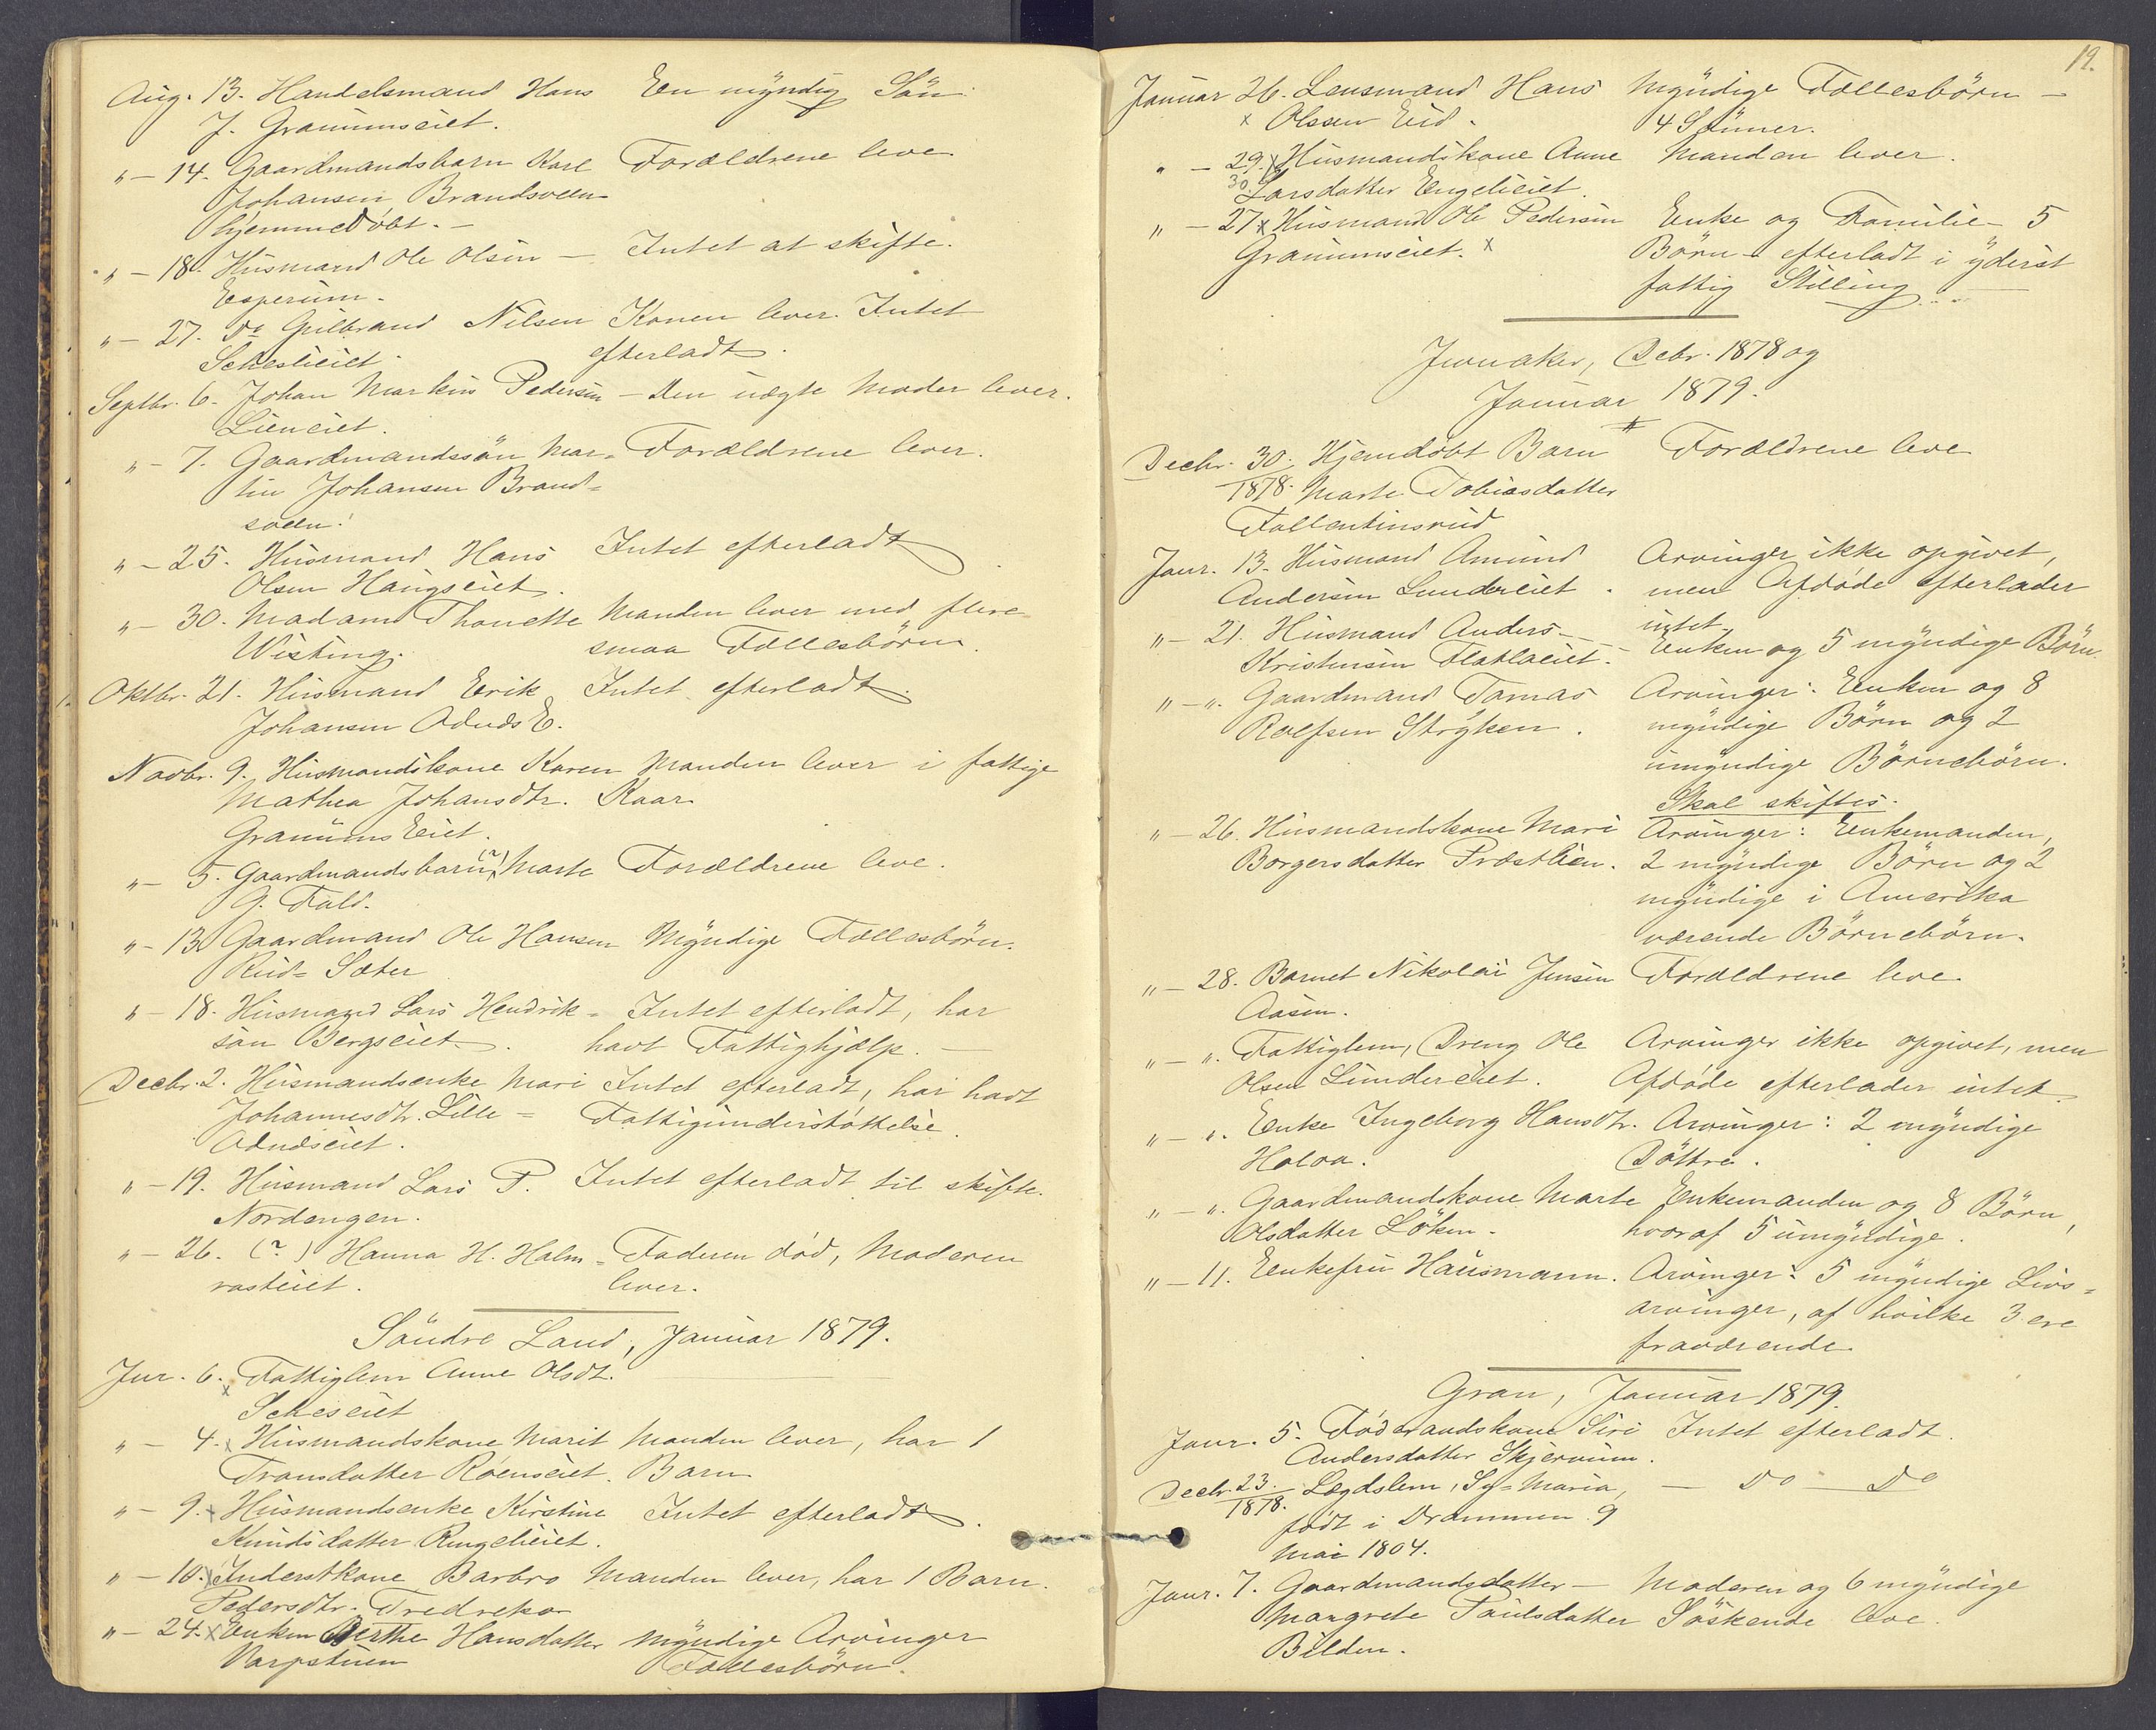 Aug. 13. Handelsmand Hans En myndig Sön
J. Granumseiet.
" - 14. Gaardmandsbarn Karl Forældrene leve
Johansen Brandsvoen
hjemmedöbt. -
" - 18. Husmand Ole Olsen - Intet at skifte.
Esperum.
" - 27. Do Gulbrand Nilsen Konen lever. Intet
Scheslieiet. efterladt.
Septbr. 6. Johan Markus Pedersen - Den uægte Moder lever.
Lieneiet.
" - 7. Gaardmandssön Mar= Forældrene lever.
tin Johansen Brand=
svoen.
" - 25. Husmand Hans Intet efterladt
Olsen Haugseiet.
" - 30. Madam Thonette Manden lever med flere
Wisting. smaa Fællesbörn.
Oktbr. 21. Husmand Erik Intet efterladt.
Johansen Odnds E.
Novbr. 9. Husmandskone Karen Manden lever i fattige
Mathea Johansdtr. Kaar.
Granums Eiet.
" - 5. Gaardmandsbarn (?) Marte Forældrene leve.
G. Fald.
" - 13 Gaardmand Ole Hansen Myndige Fællesbörn.
Rud= Sæter
" - 18. Husmand Lars Hendrik= Intet efterladt, har
sön Bergseiet. havt Fattighjælp. -
Decbr. 2. Husmandsenke Mari Intet efterladt, har havt
Johannesdtr. Lille = Fattigunderstöttelse.
Odndseiet.
" - 19. Husmand Lars P. Intet efterladt til skifte.
Nordengen.
" - 26. (?) Hanna H. Halm= Faderen död, Moderen
rasteiet. lever.
Söndre Land, Januar 1879.
Jnr. 6. Fattiglem Anne Olsdt.
x Scheseiet
" - 4. x Husmandskone Marit Manden lever, har 1
Transdatter Röenseiet. Barn
" - 9. x Husmandsenke Kirstine Intet efterladt.
Knudsdatter Ringelieiet.
" - 10. x Inderstkone Barbro Manden lever, har 1 Barn.
Pedersdtr. Fredreka
" - 24. x Enken Berthe Hansdatter Myndige Arvinger
Varpstuen Fællesbörn.
19.
Januar 26. Lensmand Hans Myndige Fællesbörn -
x Olssen Eid. 4 Sönner.
" - 29. x Husmandskone Anne Manden lever.
30. Larsdatter Engelieiet.
" - 27 x Husmand Ole Pedersen Enke og Familie - 5
Granumseiet. x Börn - efterladt i yderst
fattig Stilling. -
Jevnaker, Debr. 1878 og
Januar 1879.
Decbr. 30. Hjemdöbt Barn Forældrene leve
1878. Marte Tobiasdatter
Fallentinsrud
Janr. 13. Husmand Amund Arvinger ikke opgivet,
Andersen Lundereiet. men Afdöde efterlader
intet.
" - 21. Husmand Anders - Enken og 5 myndige Börn.
Kristensen Flatlaeiet. -
" - ". Gaardmand Tomas Arvinger: Enken og 8
Rolfsen Stryken. myndige Börn og 2
umyndige Börnebörn.
Skal skiftes.
" - 26. Husmandskone Mari Arvinger: Enkemanden,
Borgersdatter Præstlien. 2 myndige Börn og 2
myndige i Amerika
værende Börnebörn.
" - 28. Barnet Nikolai Jensen Forældrene leve.
Aasen.
" - ". Fattiglem, Dreng Ole Arvinger ikke opgivet, men
Olsen Lundereiet. Afdöde efterlader intet.
" - ". Enke Ingeborg Hansdtr. Arvinger: 2 myndige
Haloa. Döttre.
" - ". Gaardmandskone Marte Enkemanden og 8 Börn,
Olsdatter Löken. hvoraf 5 umyndige.
" - 11. Enkefru Hausmann. Arvinger: 5 myndige Livs=
arvinger, af hvilke 3 ere
fraværende.
Gran, Januar 1879.
Janr. 5. Föderaadskone Siri Intet efterladt.
Andersdatter Skjervum.
Decbr. 23. Lægdslem, Sy=Maria, - Do - Do
1878. födt i Drammen 9
Mai 1804.
Janr. 7. Gaardmandsdatter - Moderen og 6 myndige
Margrete Paulsdatter Söskende leve.
Bilden.